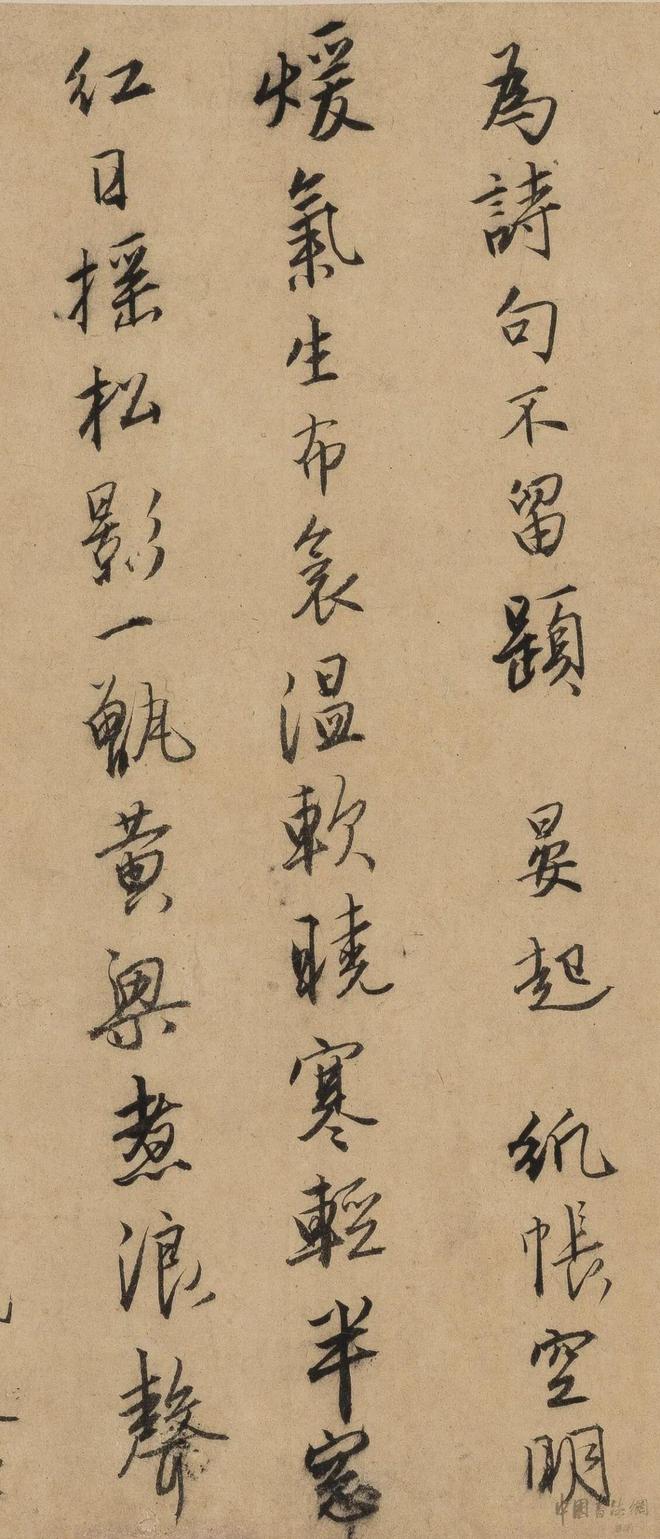 為詩句不留題 晏起 紙帳空明
煖氣生布衾溫軟曉寒輕半窓
紅日搖松影一甑黃粱煮浪聲
中国书法網